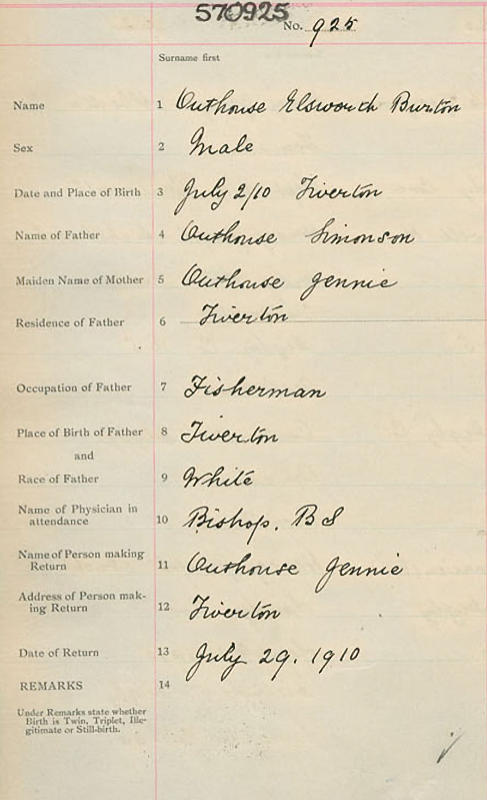 570925
No. 925
Surname first
Name 1 Outhouse Elsworth Burton
Sex 2 Male
Date and Place of Birth 3 July 2/10 Tiverton
Name of Father 4 Outhouse Simonson
Maiden Name of Mother 5 Outhouse Jennie
Residence of Father 6 Tiverton
Occupation of Father 7 Fisherman
Place of Birth of Father 8 Tiverton
and
Race of Father 9 White
Name of Physician in
attendance 10 Bishop. B S
Name of Person making
Return 11 Outhouse Jennie
Address of Person mak-
ing Return 12 Tiverton
Date of Return 13 July 29. 1910
REMARKS 14
Under Remarks state whether
Birth is Twin, Triplet, Ille-
gitimate or Still-birth.